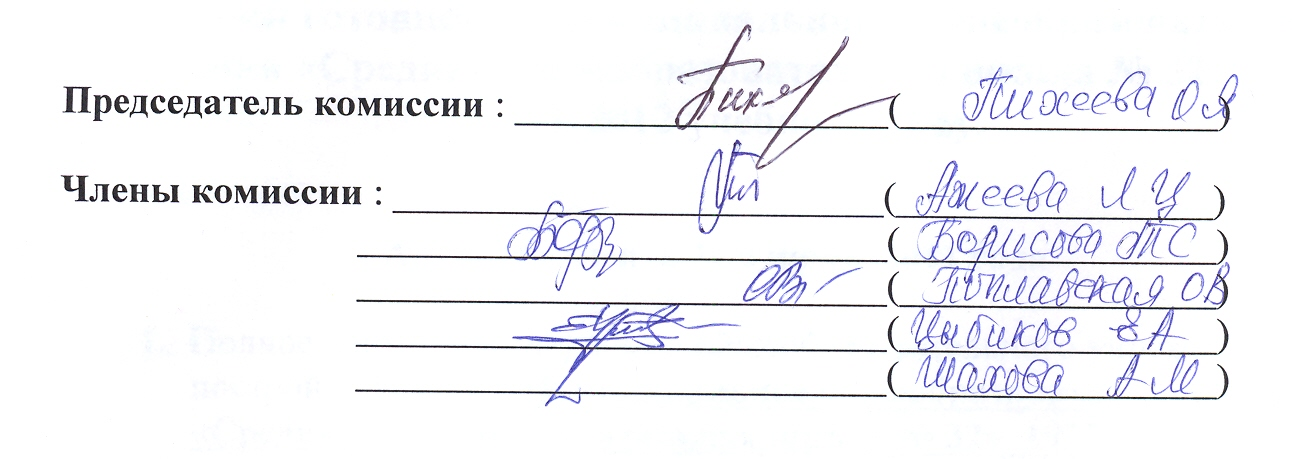 Председатель комиссии : ( Тихеева О Я )
Члены комиссии : ( Ажеева Л Ц )
( Борисова Т С )
( Поплавская О В )
( Цыбиков Е А )
( Шахова А М )